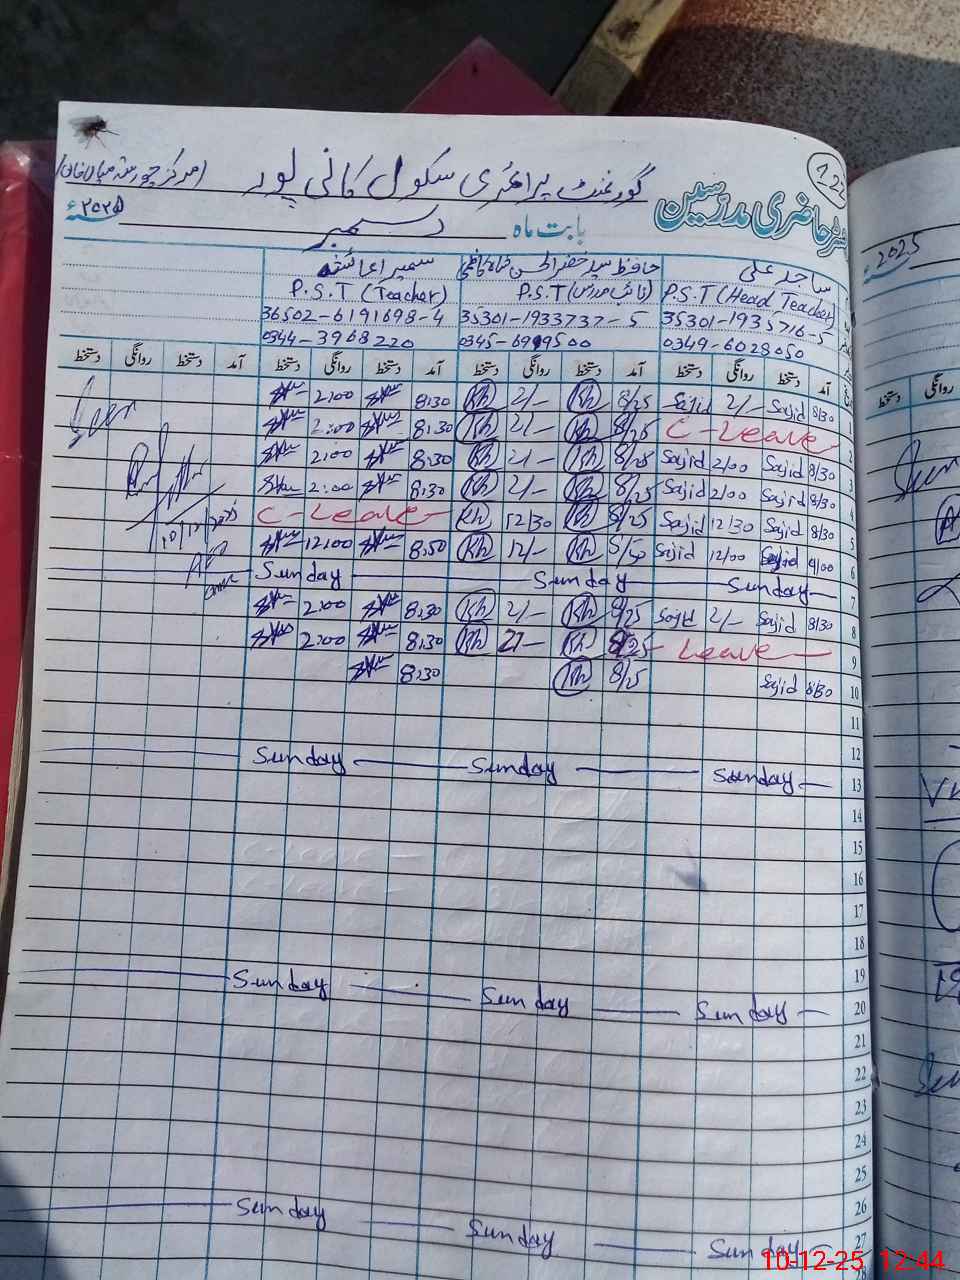 122
گورنمنٹ پرائمری سکول کانی پور
رجسٹر حاضری مدرسین
بابت ماہ دسمبر ۲۰۲۵ء
ساجد علی
حافظ سید خضر الحسن شاہ کاظمی
سمیرا عائشہ
P.S.T (Head Teacher) P.S.T (نائب مدرس) P.S.T (Teacher)
35301-1935716-5 35301-1933737-5 36502-6191698-4
0349-6028050 0345-6999500 0344-3968220
آمد دستخط روانگی دستخط آمد دستخط روانگی دستخط آمد دستخط روانگی دستخط آمد دستخط روانگی دستخط
1 8/30 Sajid 2/- Sajid 8/25 Kh 2/- Kh 8:30 2:00
2 C-Leave 8/25 Kh 2/- Kh 8:30 2:00
3 8/30 Sajid 2/00 Sajid 8/25 Kh 2/- Kh 8:30 2:00
4 8/30 Sajid 2/00 Sajid 8/25 Kh 2/- Kh 8:30 2:00
5 8/30 Sajid 12/30 Sajid 8/25 Kh 12/30 Kh C-Leave
6 Sajid 12/00 Sajid Kh 12/- Kh 8:50 12:00
7 Sunday Sunday Sunday
8 8/30 Sajid 2/- Sajid 8/25 Kh 2/- Kh 8:30 2:00
9 Leave 8/25 Kh 2/- Kh 8:30 2:00
10 8/30 Sajid 8/25 Kh 8:30
10/12/2025
11
12
13 Sunday Sunday Sunday
14
15
16
17
18
19
20 Sunday Sunday Sunday
21
22
23
24
25
26
27 Sunday Sunday Sunday
28
2025
دستخط روانگی
10-12-25 12:44